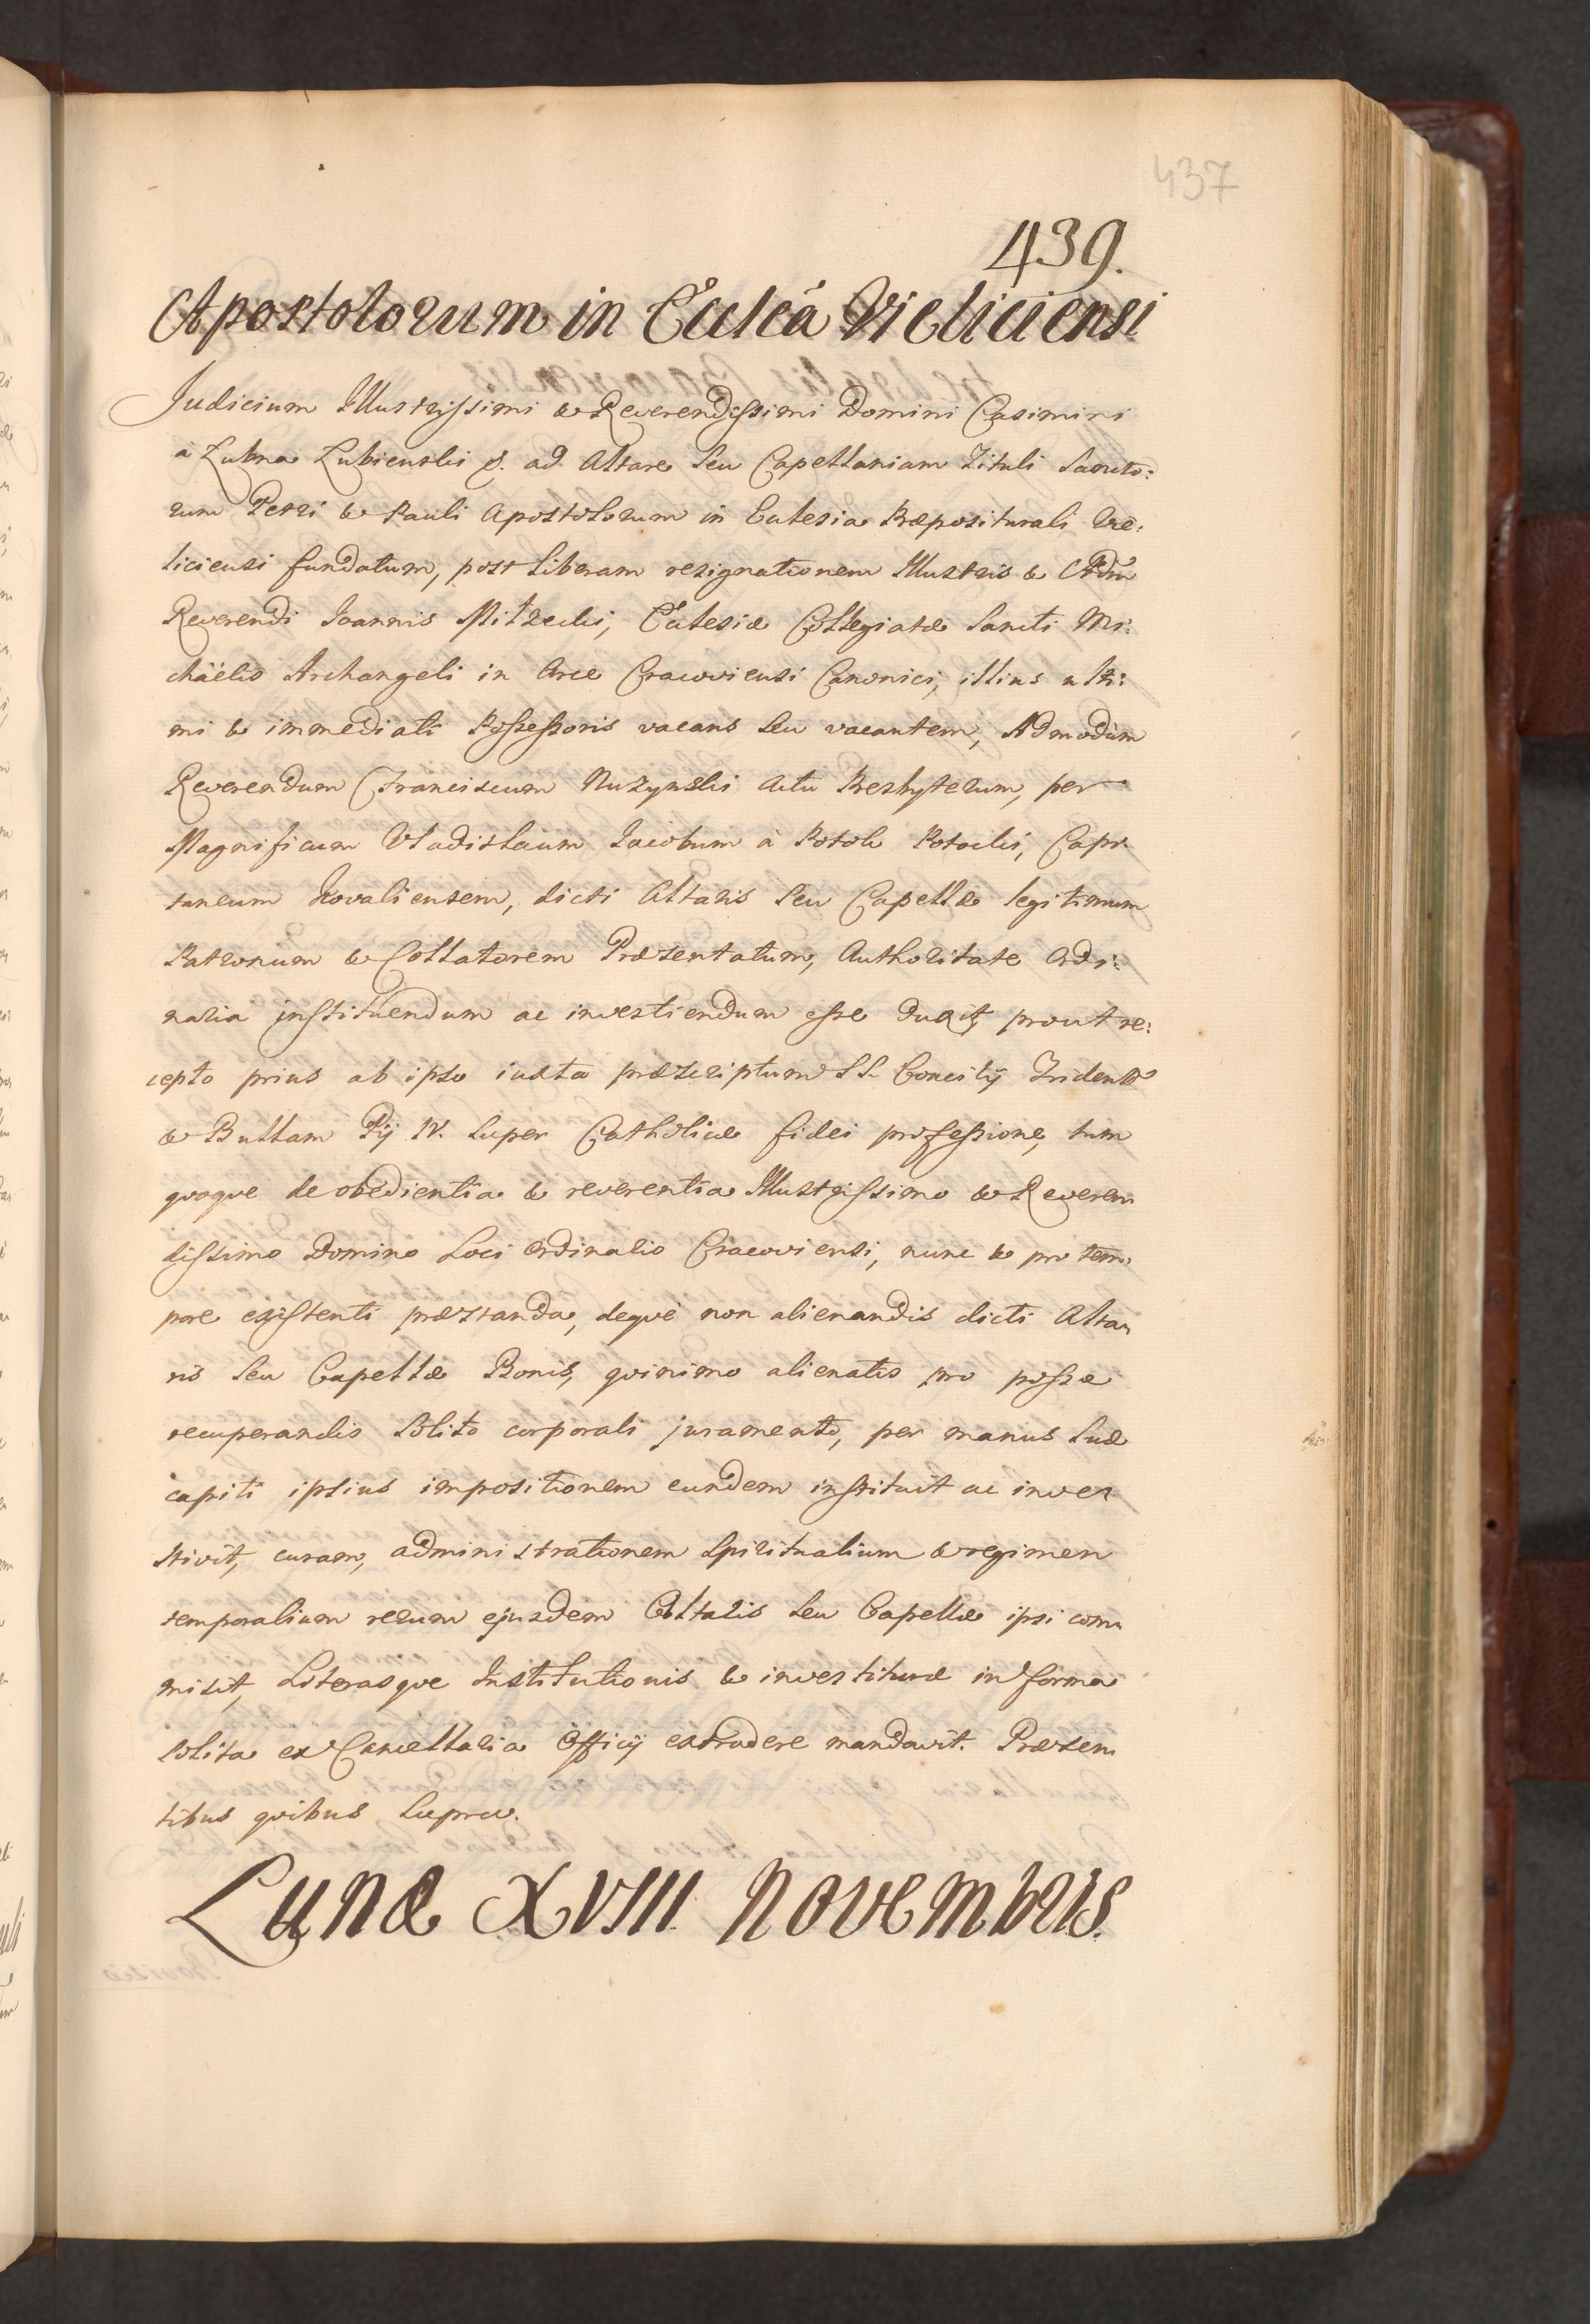 437
439.
Apostolorum in Eccleâ Vieliciensi
Judicium Illustrissimi & Reverendissimi Domini Casimiri
à Łubna Łubienski &. ad Altare seu Capellaniam Tituli Sancto:
rum Petri & Pauli Apostolorum in Ecclesia Præpositurali Vie:
liciensi fundatum, post liberam resignationem Illustris & Adm̃
Reverendi Joannis Mitzecki, Ecclesiæ Collegiatæ Sancti Mi:
chäelis Archangeli in Arce Cracoviensi Canonici, illius ulti:
mi & immediati Possessoris vacans seu vacantem, Admodùm
Reverendum Franciscum Nuzynski actu Presbyterum, per
Magnificum Vladislaum Jacobum à Potok Potocki, Capi
taneum Kovaliensem, dicti Altaris seu Capellæ legitimum
Patronum & Collatorem Præsentatum, Authoritate Ordi:
naria instituendum ac investiendum esse duxit, prout re:
cepto prius ab ipso iuxta præscriptum SS. Concilÿ Trident:
& Bullam Pÿ IV. super Catholicæ fidei professione, tum
quoque de obedientia & reverentia Illustrissimo & Reveren
dissimo Domino Loci Ordinario Cracoviensi, nunc & pro tem
pore existenti præstanda, deque non alienandis dicti Alta
ris seu Capellæ Bonis, quinimo alienatis pro posse
recuperandis solito corporali juramento, per manus suæ
capiti ipsius impositionem eundem instituit ac inve
stivit, curam, administrationem Spiritualium & regimen
temporalium rerum ejusdem Altaris seu Capellæ ipsi com
misit, Literasque Institutionis & investituræ in forma
solita ex Cancellaria Officÿ extradere mandavit. Præsen
tibus quibus supra.
Lunæ XVIII Novembris.